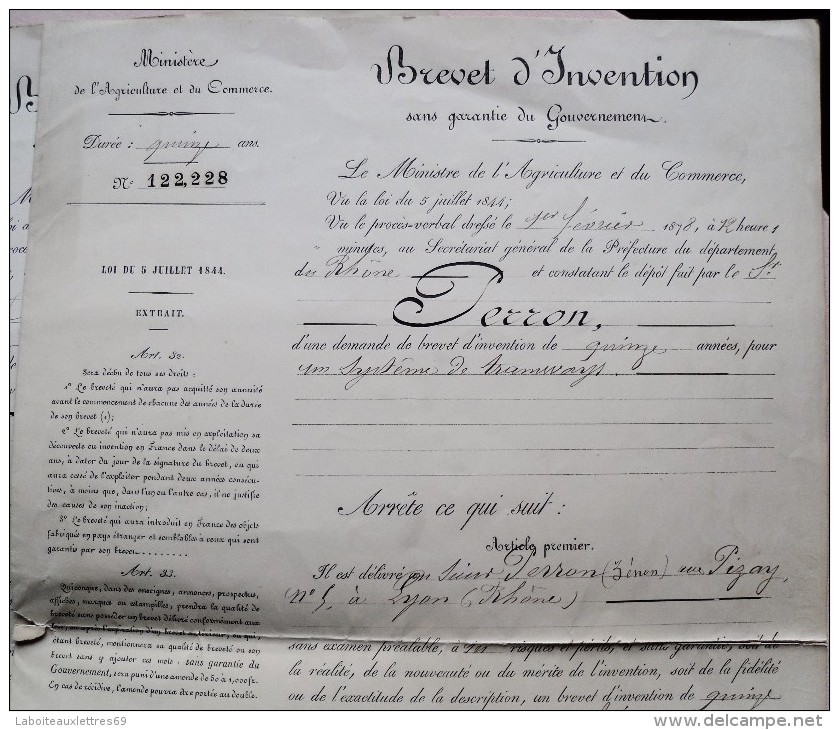 Ministère
de l'Agriculture et du Commerce.
Durée : quinze ans.
N° 122,228
LOI DU 5 JUILLET 1844.
EXTRAIT.
Art. 32.
Sera déchu de tous ses droits :
1° Le breveté qui n'aura pas acquitté son annuité
avant le commencement de chacune des années de la durée
de son brevet (1);
2° Le breveté qui n'aura pas mis en exploitation sa
découverte ou invention en France dans le délai de deux
ans, à dater du jour de la signature du brevet, ou qui
aura cessé de l'exploiter pendant deux années consécu-
tives, à moins que, dans l'un ou l'autre cas, il ne justifie
des causes de son inaction;
3° Le breveté qui aura introduit en France des objets
fabriqués en pays étranger et semblables à ceux qui sont
garantis par son brevet.........
Art. 33.
Quiconque, dans des enseignes, annonces, prospectus,
affiches, marques ou estampilles, prendra la qualité de
breveté sans posséder un brevet délivré conformément aux
lois, ou après l'expiration d'un brevet antérieur, ou qui,
étant breveté, mentionnera sa qualité de breveté ou son
brevet sans y ajouter ces mots : sans garantie du
Gouvernement, sera puni d'une amende de 50 à 1,000 fr.
En cas de récidive, l'amende pourra être portée au double.
Brevet d'Invention
sans garantie du Gouvernement.
Le Ministre de l'Agriculture et du Commerce,
Vu la loi du 5 juillet 1844;
Vu le procès-verbal dressé le 1er février 1878, à 12 heures
" minutes, au Secrétariat général de la Préfecture du département
du Rhône et constatant le dépôt fait par le Sr.
Perron,
d'une demande de brevet d'invention de quinze années, pour
un système de tramways.
Arrête ce qui suit :
Article premier.
Il est délivré au Sieur Perron (Zénon) rue Pizay,
n° 5, à Lyon (Rhône)
sans examen préalable, à ses risques et périls, et sans garantie, soit de
la réalité, de la nouveauté ou du mérite de l'invention, soit de la fidélité
ou de l'exactitude de la description, un brevet d'invention de quinze
Laboiteauxlettres69
delcampe.net